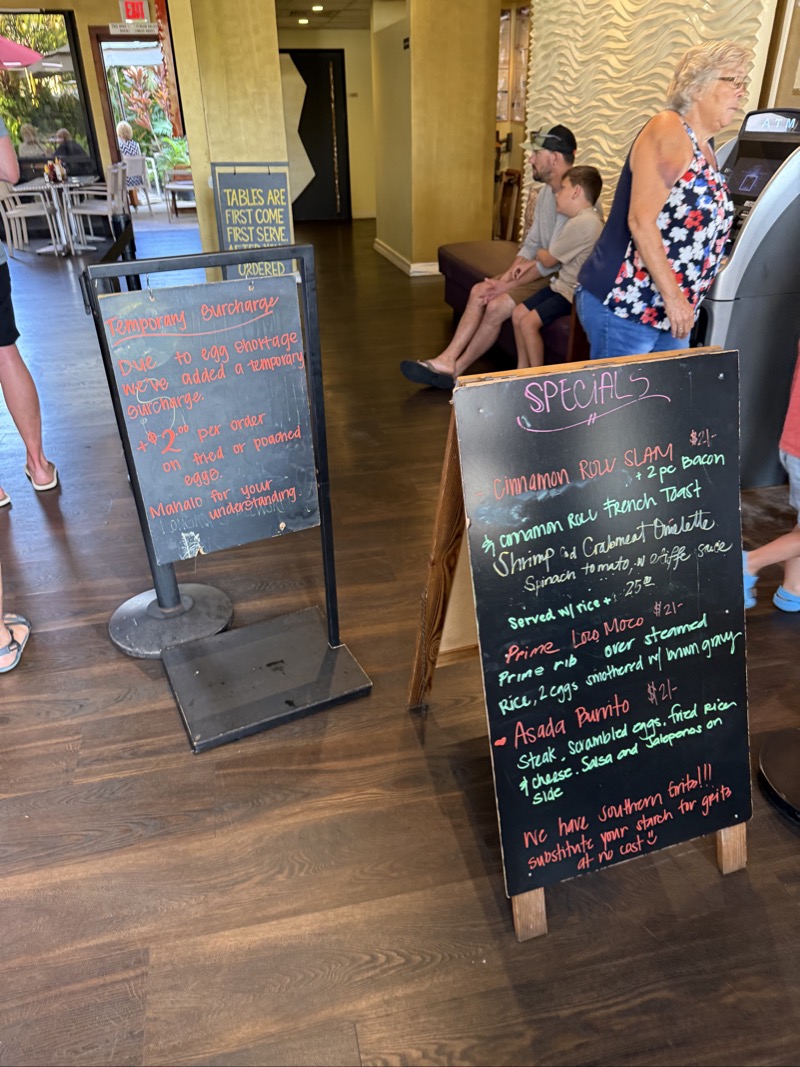 EXIT
TABLES ARE
FIRST COME
FIRST SERVE
ORDERED
Temporary Surcharge
Due to egg shortage
we've added a temporary
surcharge.
+$2.00 per order
on fried or poached
eggs.
Mahalo for your
understanding.
ATM
SPECIALS
Cinnamon Roll SLAM $21-
+ 2 pc Bacon
& cinnamon Roll French Toast
Shrimp and Crabmeat Omelette
Spinach tomato, w/ sauce
Served w/ rice + 25.00
Prime Loco Moco $21-
Prime rib over steamed
Rice, 2 eggs smothered w/ brown gravy
Asada Burrito $21-
Steak, Scrambled eggs, fried Rice
& cheese. Salsa and Jalapenos on
side
We have southern Grits!!!
substitute your starch for grits
at no cost